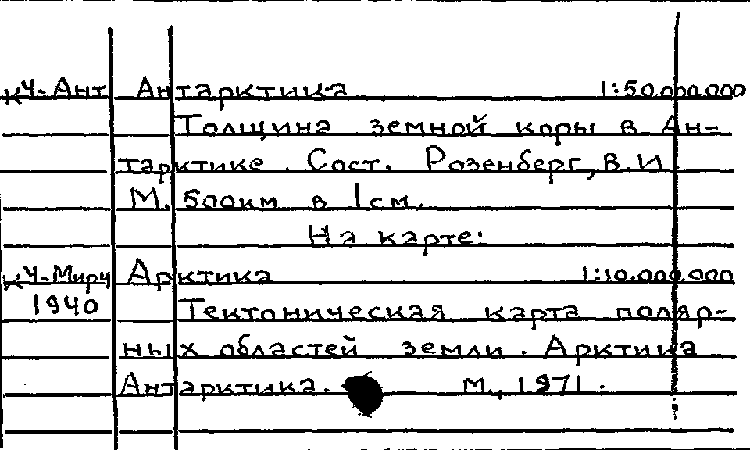 кЧ-Ант Антарктика 1:50.000.000
Толщина земной коры в Ан-
тарктике. Сост. Розенберг, В.И.
М. 500км в 1см.
На карте:
кЧ-Мирч Арктика 1:10.000.000
1940 Тектоническая карта поляр-
ных областей земли. Арктика
Антарктика. М., 1971.